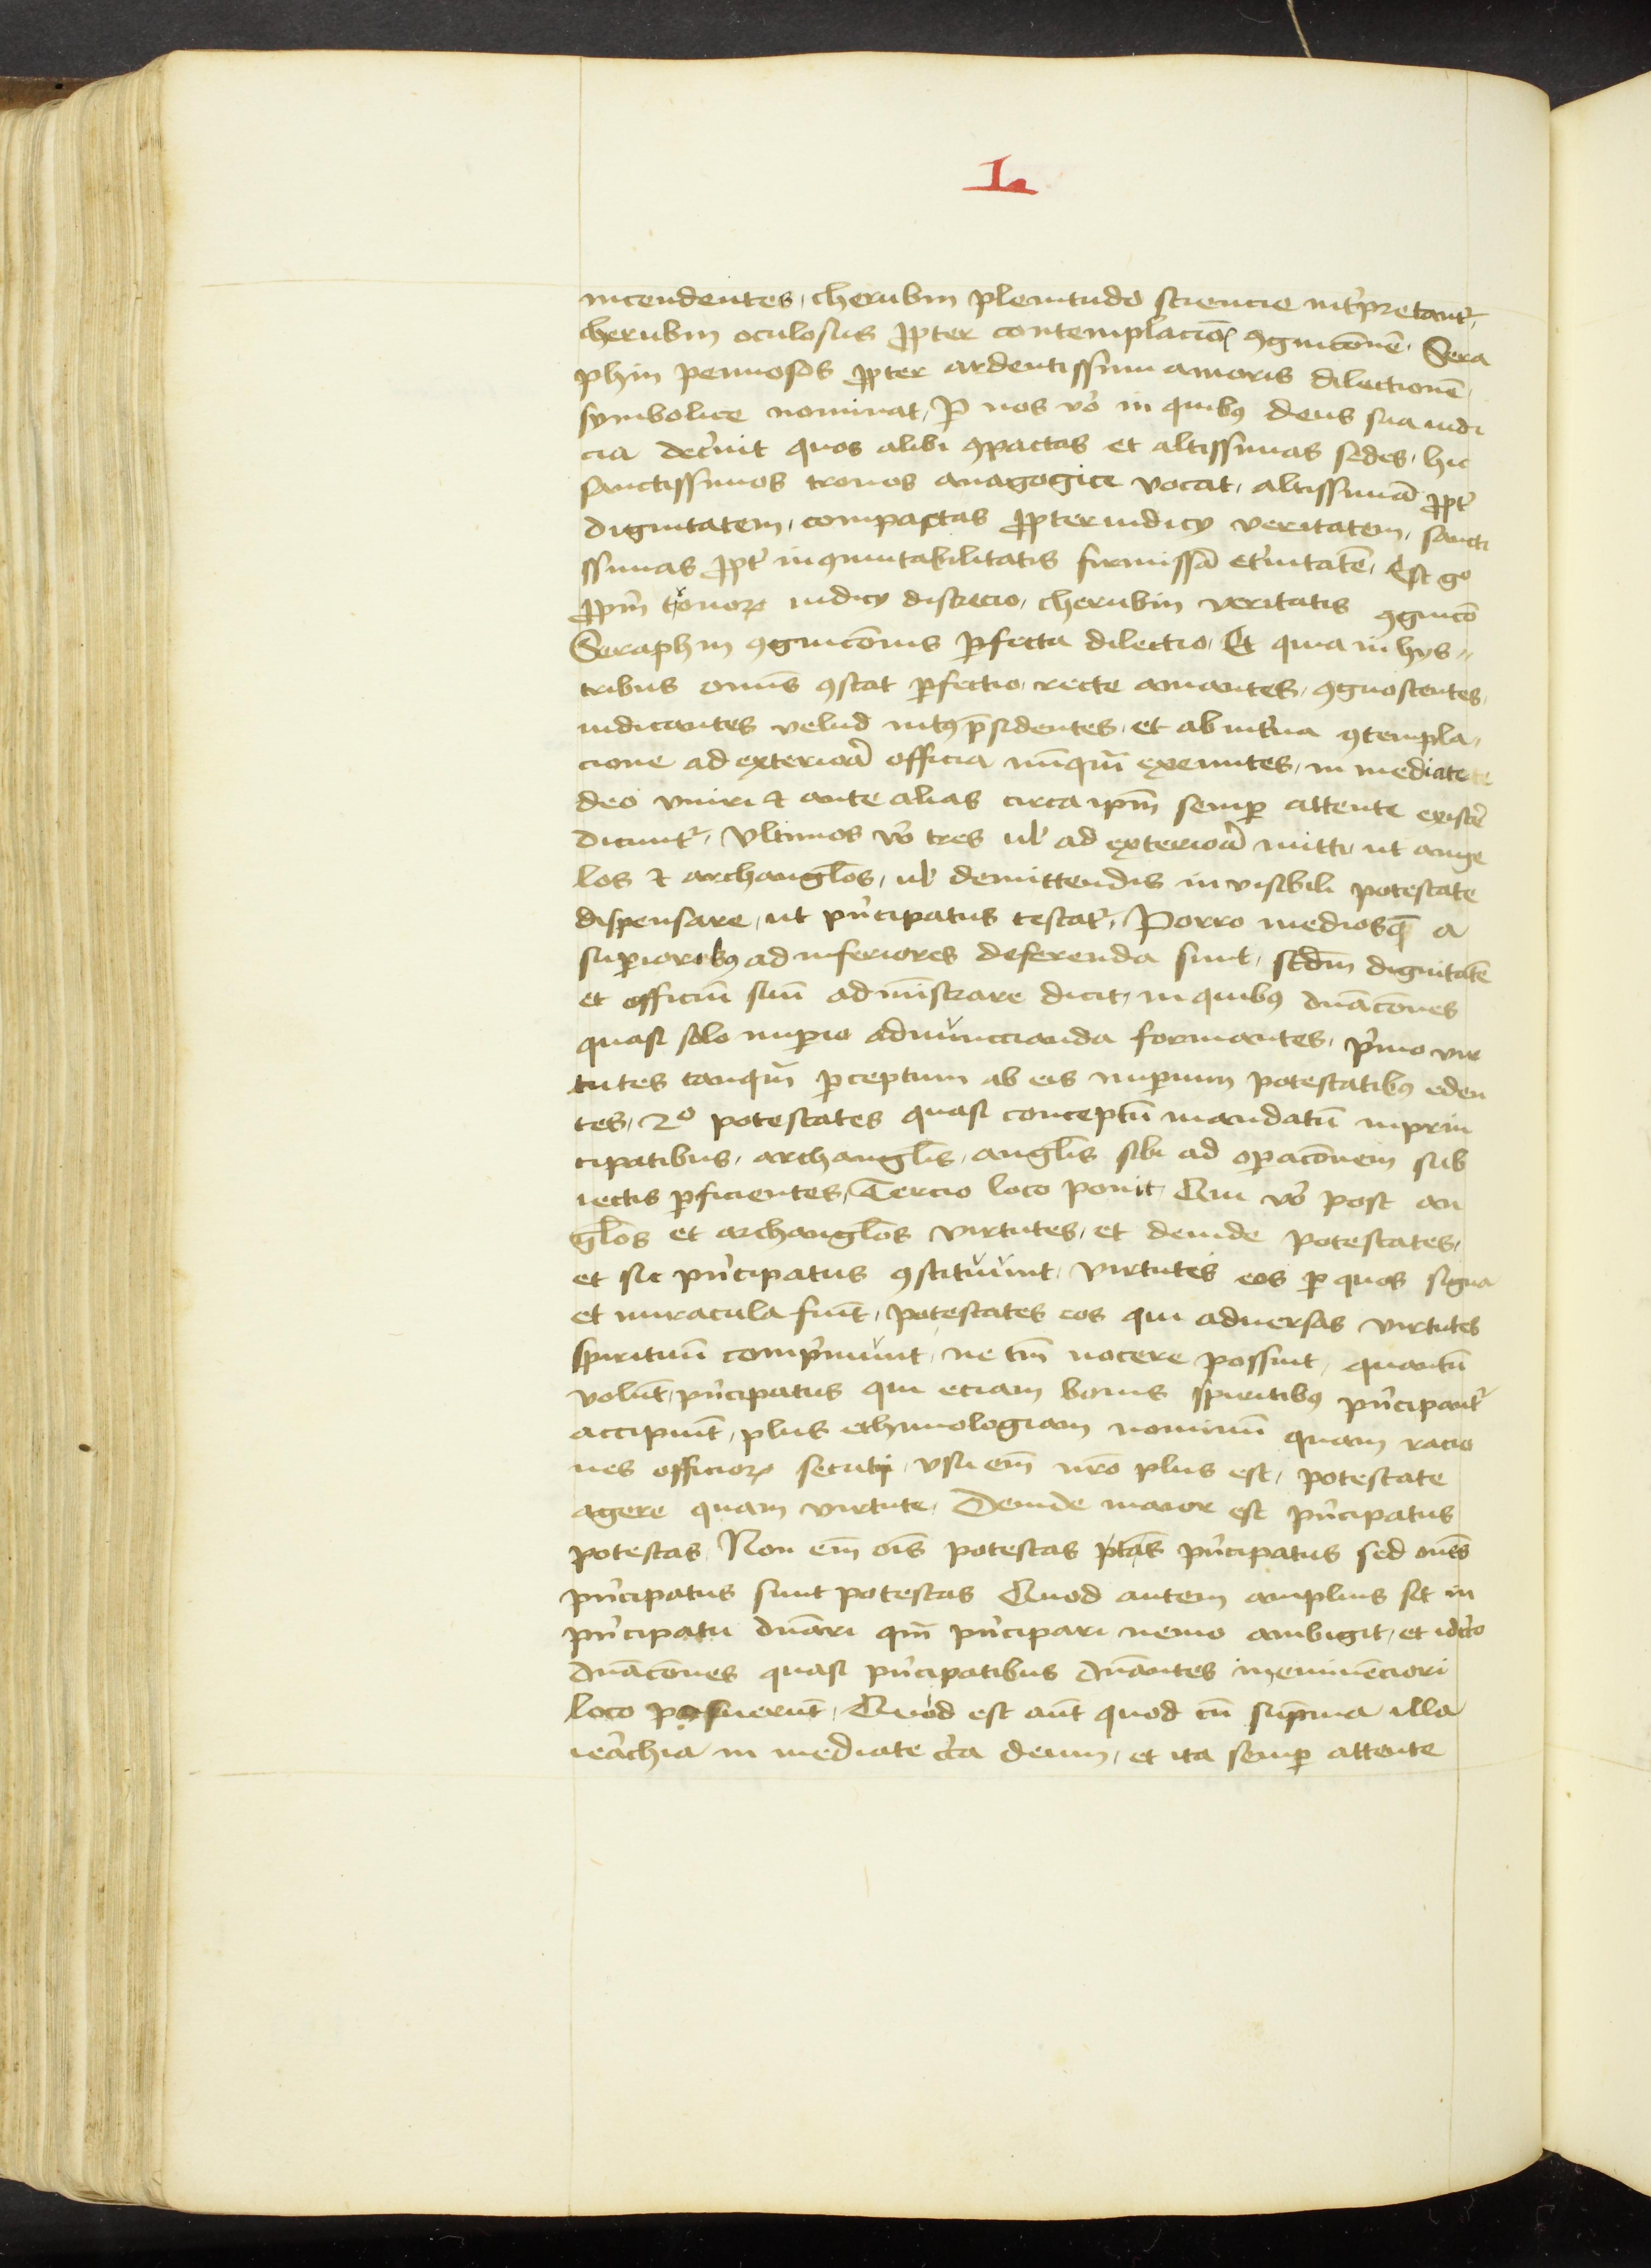 L
incendentes, cherubin plenitudo sciencie int̓pretant᷑,
cherubin oculosus ꝓpter contemplacio᷑ ꝯgnicōnē, Sera
phin pennosos ꝓpter ardentissimi amoris dilectionē,
symbolice nominat, P nos vo̓ in quibꝰ deus sua iudi
cia dec̓nit quos alibi ꝯpactas et altissimas sedes, hic
sanctissimos tronos anagogice vocat, altissimā ꝓpt̓
dignitatem, compactas ꝓpter iudicy veritatem, sancti
ssimas ꝓpt̓ inꝯmutabilitatis firmissā et̓nitatē, Est gͦ
ꝓpm̄ tronoꝝ iudicy discrecio, cherubin veritatis ꝯgnicō
Seraphin ꝯgnicōnis ꝑfecta dilectio, Et quia in hys〃
tribus omīs ꝯstat ꝑfectio, recte amantes, ꝯgnoscentes,
iudicantes velud intꝰ p̄sidentes, et ab int̓na ꝯtempla,
cione ad exterioā officia nūqm̄ exeuntes, in mediate
deo vniri ⁊ ante alias circa ipm̄ semꝑ attente exist̓e
dicunt᷑, Vltimos vo̓ tres ul̓ ad exterioā mitti, ut ange
los ⁊ archangl̄os, ul̓ demittendis in visibili potestate
dispensare, ut pn̓cipatus testat᷑, Porro medios q̄ a
suꝑioribꝰ ad inferiores deferenda sunt, scdm̄ dignitatē
et officiū suū ad ministrare dicit, in quibꝰ dnāc̄ones
quasi solo imꝑio adnunccianda formantes, p̓mo vir
tutes tanqm̄ ꝑceptum ab eis imꝑium potestatibꝰ eden
tes, 2ͦ potestates quasi conceptū mandatū in prin
cipatibus, archanglīs, anglīs sibi ad oꝑacōnem sub
iectis ꝑficientes, Tercio loco ponit, Qui vo̓ post an
gl̄os et archangl̄os virtutes, et deinde potestates,
et sic pn̓cipatus ꝯstituunt, virtutes eos ꝑ quos signa
et miracula fiunt, potestates eos qui aduersas virtutes
spirituū comp̓munt, ne tm̄ nocere possint, quantū
volunt, pn̓cipatus qui eciam bonis spiritibꝰ pn̓cipant᷑
accipiūt, plus ethimologiam nominū quam racio
nes officioꝝ secuti, vsu em̄ nr̄o plus est, potestate
agere quam virtute, Deinde maior est pn̓cipatus
potestas, Non em̄ oīs potestas ptās pn̓cipatus sed omēs
pn̓cipatus sunt potestas Quod autem amplius sit in
pn̓cipatu dnāri qm̄ pn̓cipari nemo ambigit, et id̓co
dnāc̄ones quasi pn̓cipatibus dnāntes in eminēciori
loco posuerūt, Quid est aūt quod cū sup̄ma illa
ieāchia in mediate c̓ca deum, et ita semꝑ attente